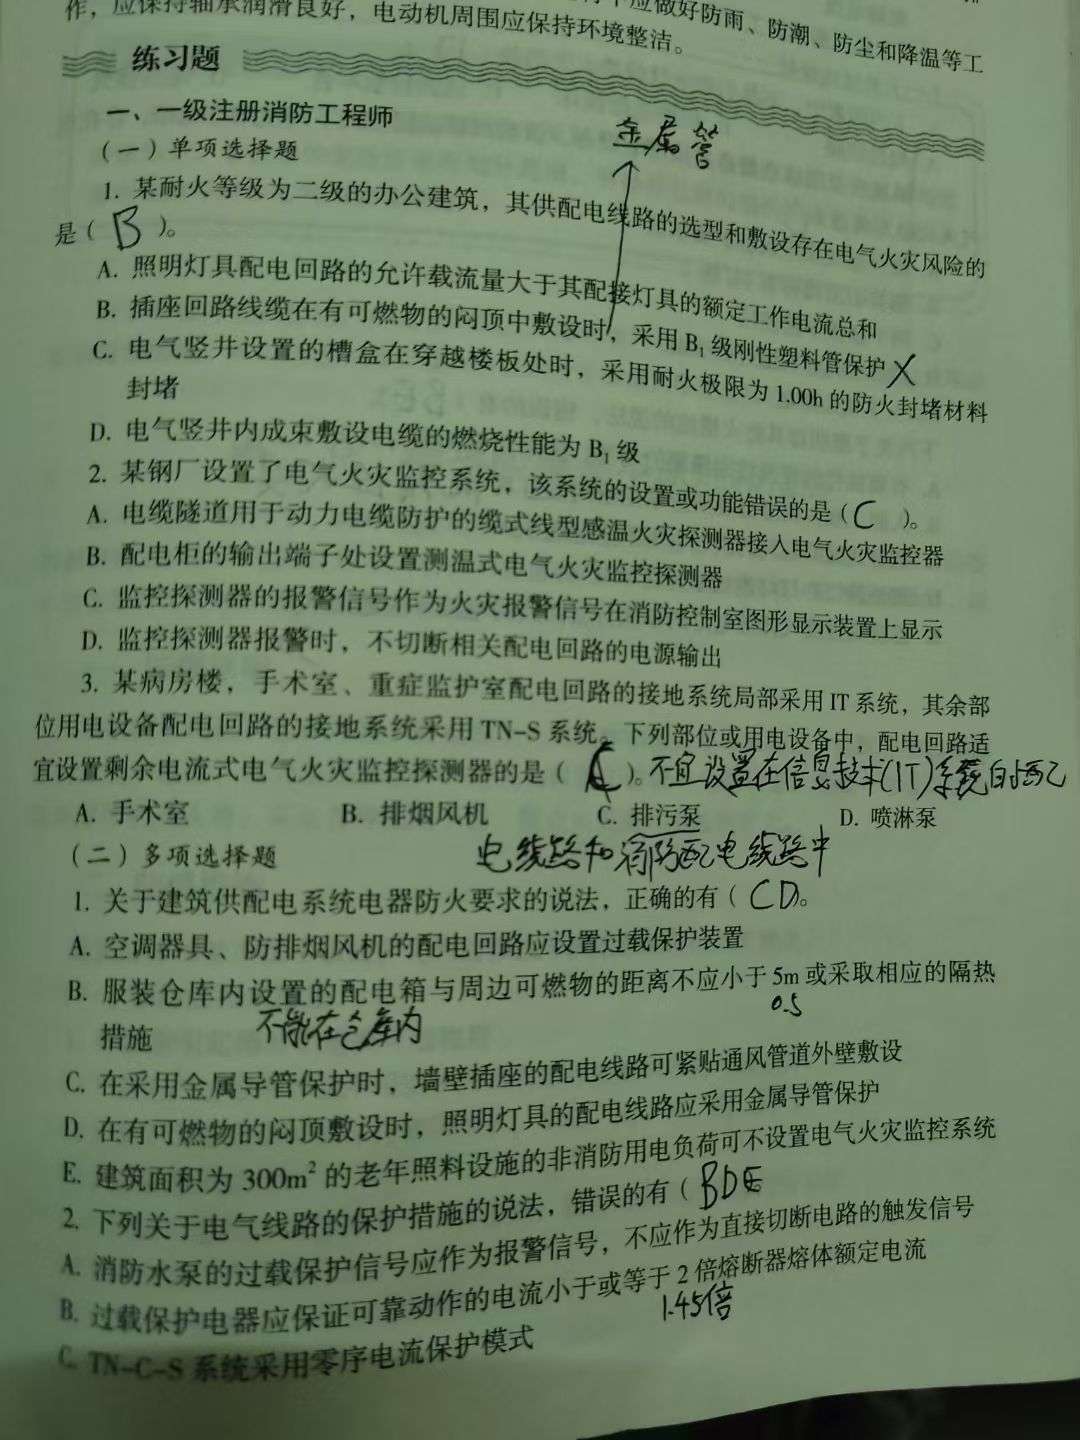 作，应保持轴承润滑良好，电动机周围应保持环境整洁。
应做好防雨、防潮、防尘和降温等工
练习题
一、一级注册消防工程师
金属管
（一）单项选择题
1. 某耐火等级为二级的办公建筑，其供配电线路的选型和敷设存在电气火灾风险的
是（ B ）。
A. 照明灯具配电回路的允许载流量大于其配接灯具的额定工作电流总和
B. 插座回路线缆在有可燃物的闷顶中敷设时，采用 B₁ 级刚性塑料管保护 X
C. 电气竖井设置的槽盒在穿越楼板处时，采用耐火极限为 1.00h 的防火封堵材料
封堵
D. 电气竖井内成束敷设电缆的燃烧性能为 B₁ 级
2. 某钢厂设置了电气火灾监控系统，该系统的设置或功能错误的是（ C ）。
A. 电缆隧道用于动力电缆防护的缆式线型感温火灾探测器接入电气火灾监控器
B. 配电柜的输出端子处设置测温式电气火灾监控探测器
C. 监控探测器的报警信号作为火灾报警信号在消防控制室图形显示装置上显示
D. 监控探测器报警时，不切断相关配电回路的电源输出
3. 某病房楼，手术室、重症监护室配电回路的接地系统局部采用 IT 系统，其余部
位用电设备配电回路的接地系统采用 TN-S 系统。下列部位或用电设备中，配电回路适
宜设置剩余电流式电气火灾监控探测器的是（ C ）。不宜设置在信息技术(IT)系统的配
A. 手术室 B. 排烟风机 C. 排污泵 D. 喷淋泵
电线路和消防配电线路中
（二）多项选择题
1. 关于建筑供配电系统电器防火要求的说法，正确的有（ CD ）。
A. 空调器具、防排烟风机的配电回路应设置过载保护装置
B. 服装仓库内设置的配电箱与周边可燃物的距离不应小于 5m 或采取相应的隔热
0.5
措施 不能在仓库内
C. 在采用金属导管保护时，墙壁插座的配电线路可紧贴通风管道外壁敷设
D. 在有可燃物的闷顶敷设时，照明灯具的配电线路应采用金属导管保护
E. 建筑面积为 300m² 的老年照料设施的非消防用电负荷可不设置电气火灾监控系统
2. 下列关于电气线路的保护措施的说法，错误的有（ BDE
A. 消防水泵的过载保护信号应作为报警信号，不应作为直接切断电路的触发信号
B. 过载保护电器应保证可靠动作的电流小于或等于 2 倍熔断器熔体额定电流
1.45倍
C. TN-C-S 系统采用零序电流保护模式